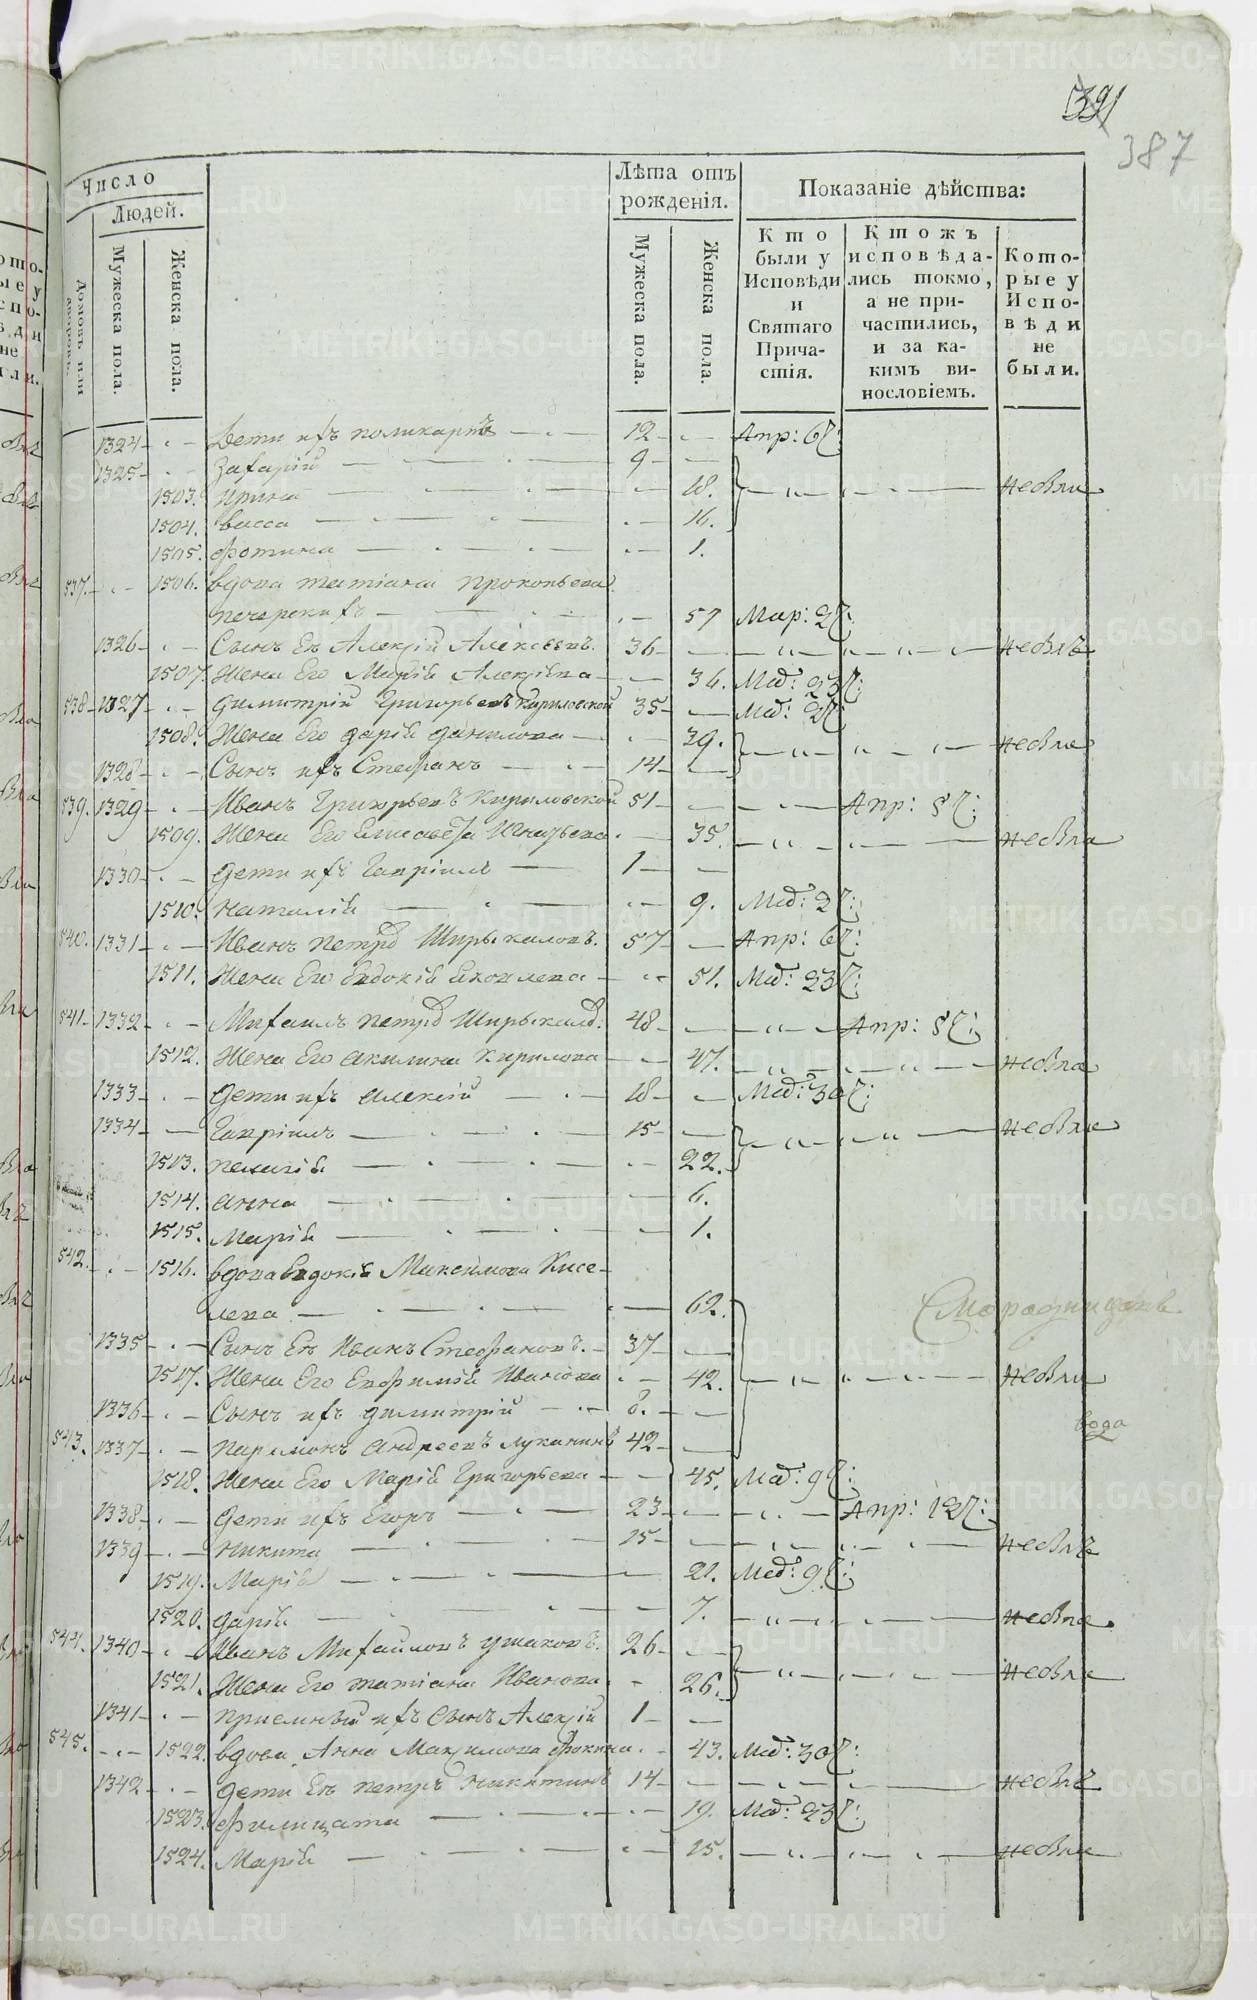 391
387
Число
Людей.
Домовъ или дворовъ.
Мужеска пола.
Женска пола.
Лѣта отъ рожденія.
Мужеска пола.
Женска пола.
Показаніе дѣйства:
Кто были у Исповѣди и Святаго Прича-стія.
Ктожъ исповѣда-лись токмо, а не при-частились, и за ка-кимъ ви-нословіемъ.
Кото-рые у Испо-вѣди не были.
1324 Дети ихъ поликарпъ 12 Апр: 6
1325 Захарій 9
1503. Ирина 18. небыли
1504. васса 16.
1505. фотина 1.
537. 1506. вдова татіана прокопьева
печерскихъ 57 Мар: 2
1326 Сынъ Ея Алексій Алексеевъ. 36 небылъ
1507. Жена Его Марія Алексѣева 36. Ма: 23
538 1327 Димитрій Григорьевъ Кириловской 35 Ма: 2
1508. Жена Его дарія данилова 39. небыли
1328 Сынъ ихъ Стефанъ 14
539. 1329 Иванъ Григорьевъ Кириловской 51 Апр: 5
1509. Жена Его Елисавета Игнатьева 35. небыла
1330 дети ихъ Гавріилъ 1
1510. наталія 9. Ма: 2
540. 1331 Иванъ петровъ Ширыкаловъ. 57 Апр: 6
1511. Жена Его Евдокія Яковлева 51. Ма: 23
541. 1332 Михаилъ петровъ Ширыкалов: 48 Апр: 5
1512. Жена Его акилина Кирилова 47. небыла
1333 дети ихъ алексій 18 Ма: 30
1334 Гавріилъ 15 небыли
1513. пелагія 22.
1514. анна 6.
1515. Марія 1.
542. 1516. вдова Евдокія Максимова Кисе-
лева 62.
1335 Сынъ Ея Иванъ Стефановъ. 37
1517. Жена Его Евфимія Иванова 42. небыли
1336 Сынъ ихъ димитрій 8.
543. 1337 парамонъ андреевъ луканинъ 42
1518. Жена Его Марія Григорьева 45. Ма: 9
1338 дети ихъ Егоръ 23 Апр: 12
1339 никита 15 небылъ
1519. Марія 21. Ма: 9
1520. дарія 7. небыла.
544. 1340 Иванъ Михайловъ ушаковъ. 26
1521. Жена Его татіана Иванова 26. небыли
1341 приемный ихъ Сынъ Алексій 1
545. 1522. вдова Анна Максимова фокина 43. Ма: 30
1342 дети Ея петръ никитинъ 14 небылъ
1523. филицата 19. Ма: 23
1524. Марія 15. небыла
METRIKI.GASO-URAL.RU